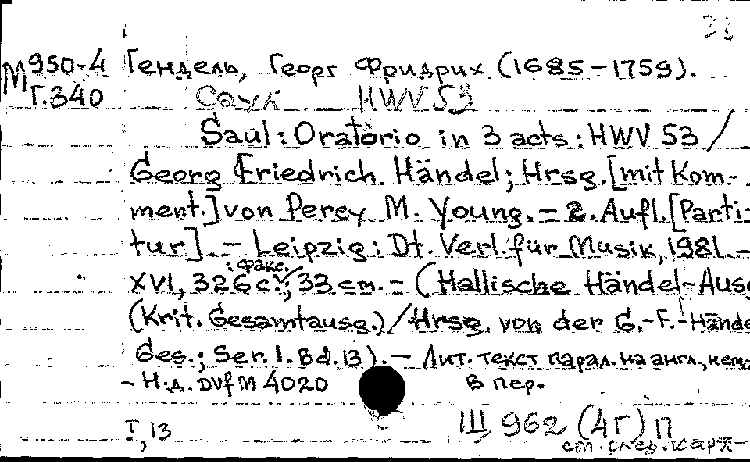 М950-4 Гендель, Георг Фридрих (1685-1759).
Г.340 Саул HWV 53
Saul: Oratorio in 3 acts: HWV 53 /
Georg Friedrich Händel; Hrsg. [mit Kom-
ment.] von Percy M. Young. - 2. Aufl. [Parti-
tur] - Leipzig: Dt. Verl. für Musik, 1981. -
XVI, 326 с.: факс.; 33 см. - (Hallische Händel-Ausg
(Krit. Gesamtausg.) / Hrsg. von der G.-F.-Hände
Ges.; Ser. 1. Bd. 13). - Лит. текст парал. на англ., нем.
- Н.д. DVfM 4020 В пер.
I, 13 Ш 962 (4Г) П
см. след. карт-